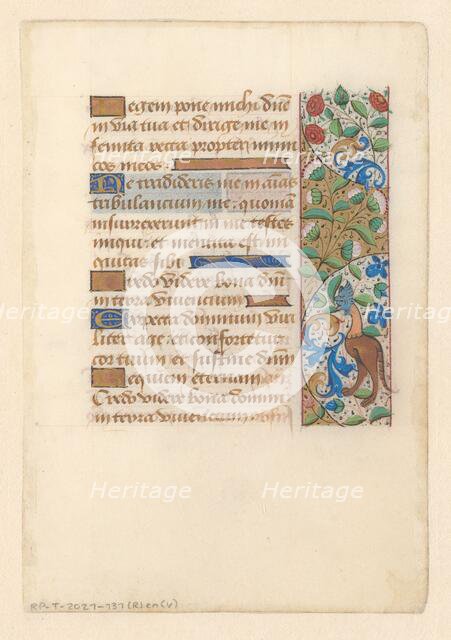 Legem pone michi dñe
in via tua et dirige me in
semita recta propter inimi
cos meos
Ne tradideris me in aīas
tribulancium me: quoniā
insurrexerunt in me testes
iniqui: et mentita est ini
quitas sibi
Credo videre bona dñi
in terra viventium
Expecta dominum viri
liter age et confortetur
cor tuum et sustine dñm
Requiem eternam
Credo videre bona domini
in terra viventium
Heritage Heritage
RP-T-2021-131(R)en(V)